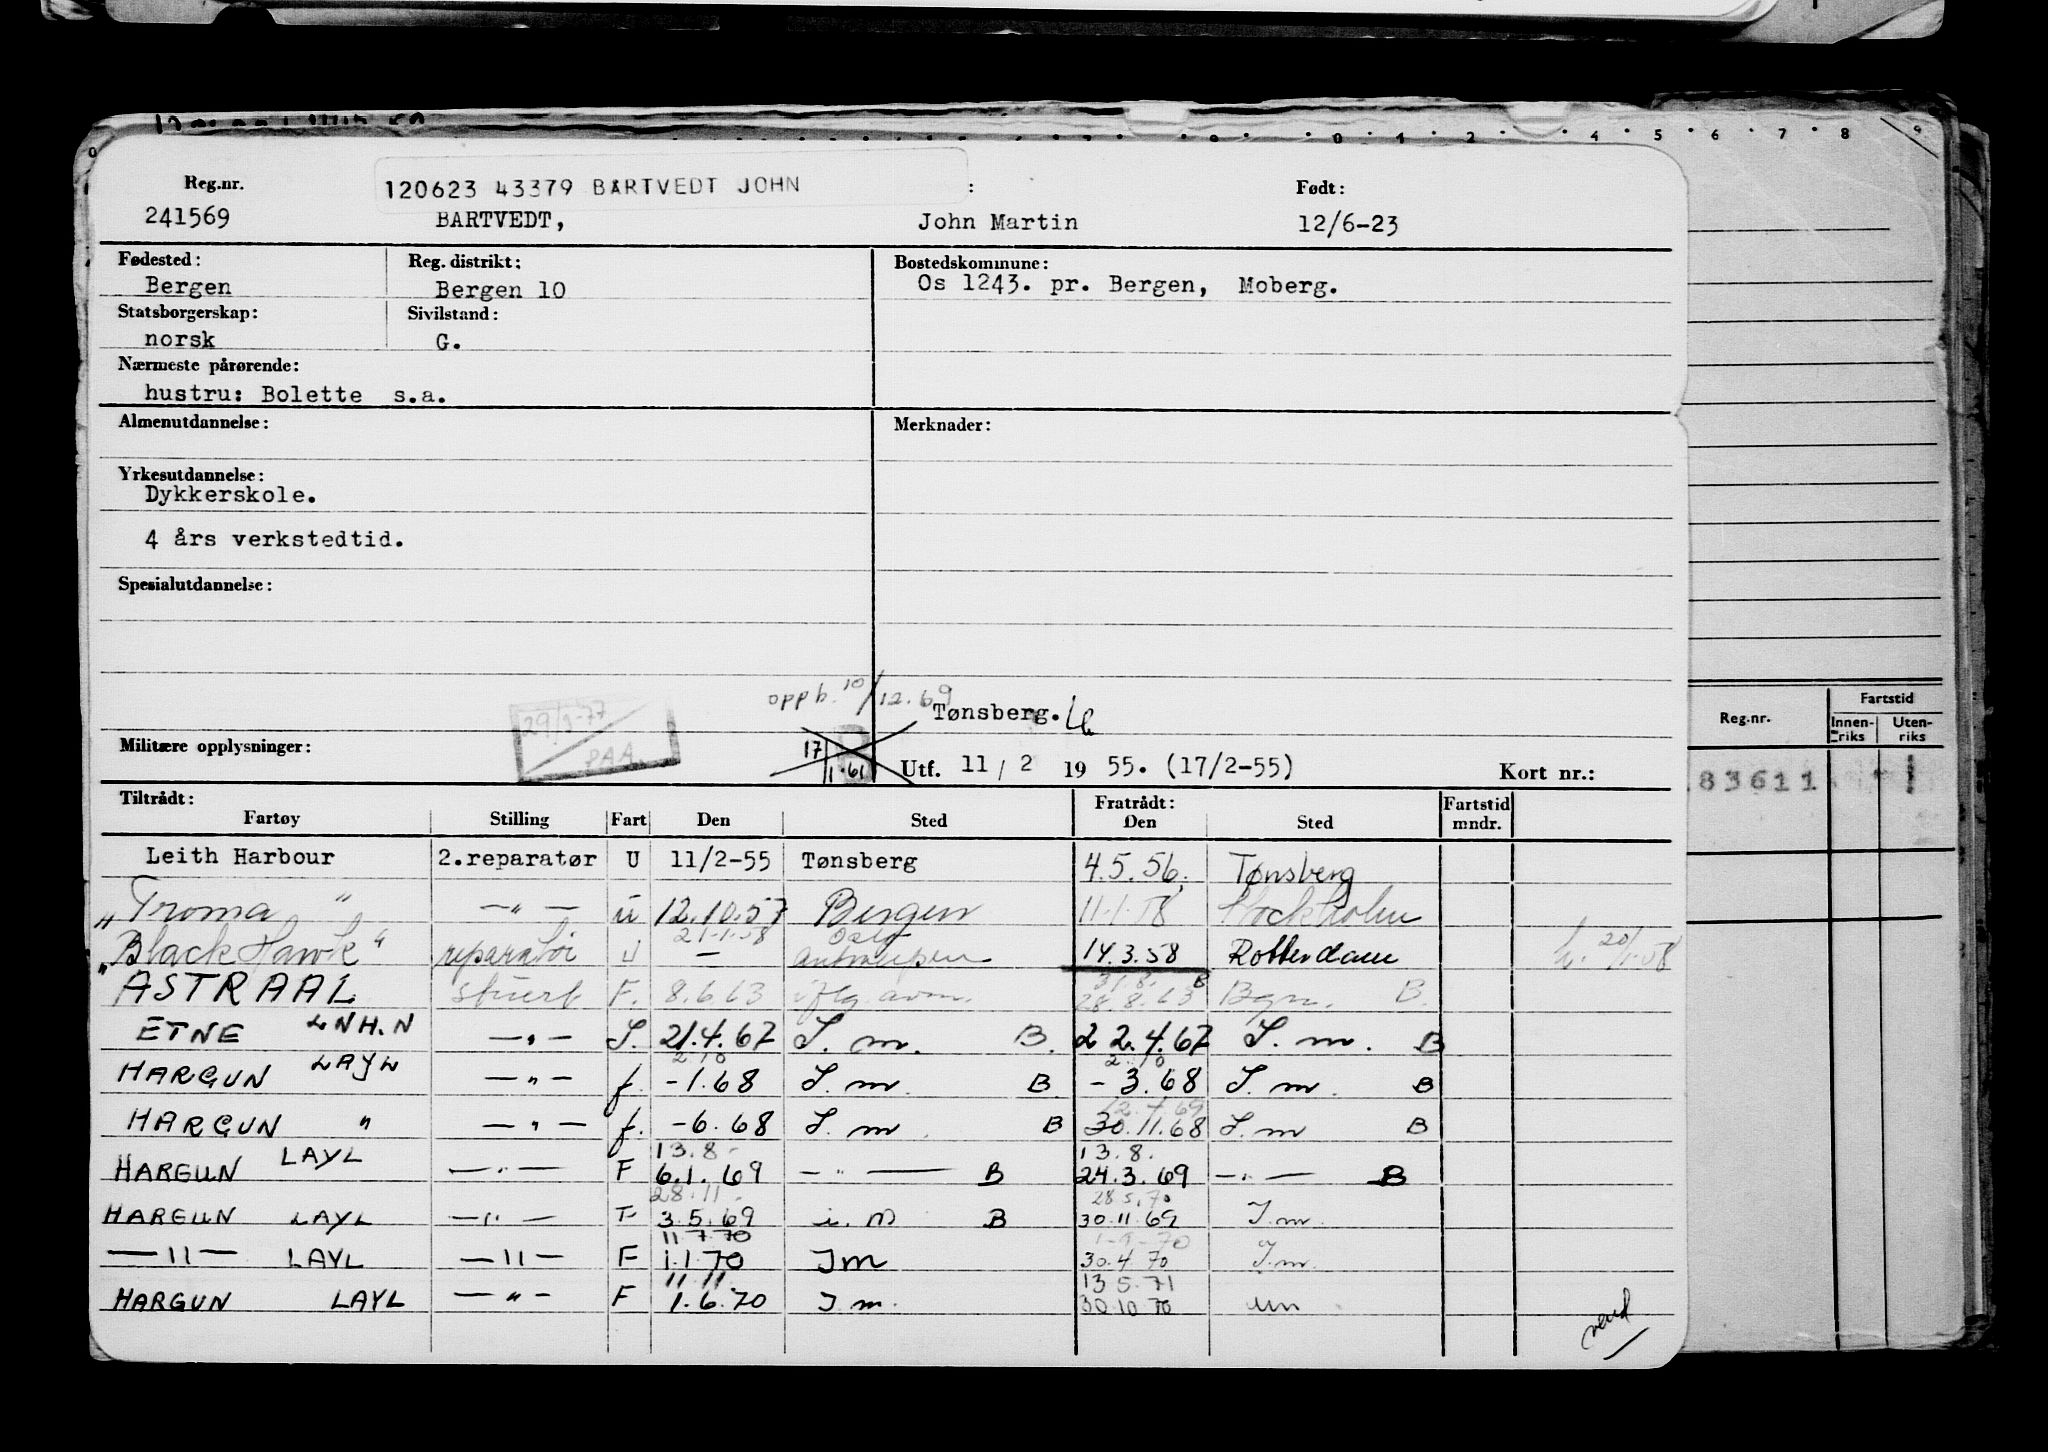 Reg.nr. 120623 43379 BARTVEDT JOHN : Født:
241569 BARTVEDT, John Martin 12/6-23
Fødested: Reg. distrikt: Bostedskommune:
Bergen Bergen 10 Os 1243. pr. Bergen, Moberg.
Statsborgerskap: Sivilstand:
norsk G.
Nærmeste pårørende:
hustru: Bolette s.a.
Almenutdannelse: Merknader:
Yrkesutdannelse:
Dykkerskole.
4 års verkstedtid.
Spesialutdannelse:
oppg. 10/12.69
Tønsberg.
29/9-77
PAA
Militære opplysninger: 17/1.61 Utf. 11/2 1955. (17/2-55) Kort nr.:
Tiltrådt: Fratrådt: Fartstid
Fartøy Stilling Fart Den Sted Den Sted mndr.
Leith Harbour 2.reparatør U 11/2-55 Tønsberg 4.5.56. Tønsberg
"Troma" —"— u 12.10.57 Bergen 11.1.58 Stockholm
21.1.58 Oslo
"Black Hawk" reparatør U — Antwerpen 14.3.58 Rotterdam 20/1.58
31.8. B
ASTRAAL stuert F. 8.6.63 iflg. avm. 28.8.63 Bgn. B.
ETNE LNHN —"— S. 21.4.67 S.m. B. 22.4.67 S.m. B
2 10 2 10
HARGUN LAYL —"— f. -1.68 S.m. B - 3.68 S.m. B
12.4.69
HARGUN " —"— f. -6.68 S.m. B 30.11.68 S.m B
13.8- 13.8.
HARGUN LAYL —"— F 6.1.69 —"— B 24.3.69 —"— B
28.11. 28.5.70
HARGUN LAYL —"— F 3.5.69 i.m B 30.11.69 I.m.
11.7.70 1-9-70
—"— LAYL —"— F 1.1.70 Im 30.4.70 I.m.
11.11. 13.5.71
HARGUN LAYL —"— F 1.6.70 I m. 30.10.70 Im
vend
Reg.nr. Fartstid
Innen-riks Uten-riks
83611